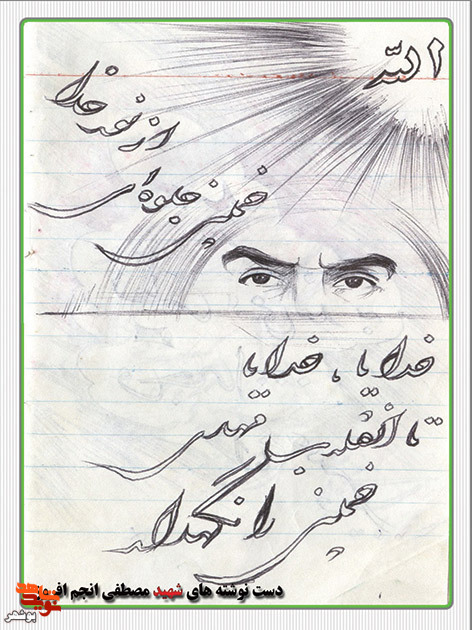 الله
خمینی جلوه‌ای
از نور خدا
خدایا، خدایا
تا انقلاب مهدی
خمینی را نگهدار
دست نوشته های شهید مصطفی انجم افروز
بوشهر